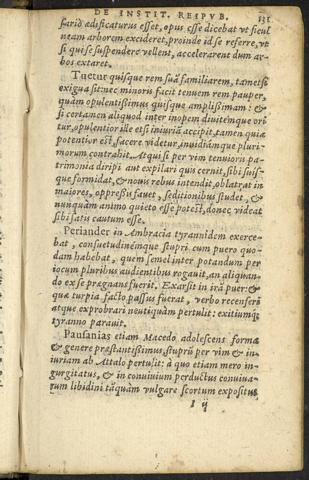 DE INSTIT. REIPVB. 131
suariū ædificaturus esset, opus esse dicebat vt ficul
neam arborem excideret, proinde id se referre, vt
si qui se suspendere vellent, accelerarent dum ar-
bos extaret.
Tuetur quisque rem suā familiarem, tametsi
exigua sit: nec minoris facit tenuem rem pauper,
quàm opulentissimus quisque amplissimam: &
si certamen aliquod inter inopem diuitémque ori
tur, opulentior ille etsi iniuriā accipit, tamen quia
potentior est, facere videtur, inuidiámque pluri-
morum contrahit. At qui si per vim tenuioris pa-
trimonia diripi aut expilari quis cernit, sibi quis-
que formidat, & nouis rebus intendit, oblatrat in
maiores, oppressis fauet, seditionibus studet, &
nunquàm animo quieto esse potest, donec videat
sibi satis cautum esse.
Periander in Ambracia tyrannidem exerce-
bat, consuetudinémque stupri cum puero quo-
dam habebat, quem semel inter potandum per
iocum pluribus audientibus rogauit, an aliquan-
do ex se prægnans fuerit. Exarsit in irā puer: &
quæ turpia facto passus fuerat, verbo recenseri
atque exprobrari neutiquàm pertulit: exitiumq́;
tyranno parauit.
Pausanias etiam Macedo adolescens forma
& genere præstantissimus, stuprū per vim & in-
iuriam ab Attalo pertulit: à quo etiam mero in-
gurgitatus, & in conuiuium perductus conuiua-
rum libidini tāquàm vulgare scortum expositus
I ij